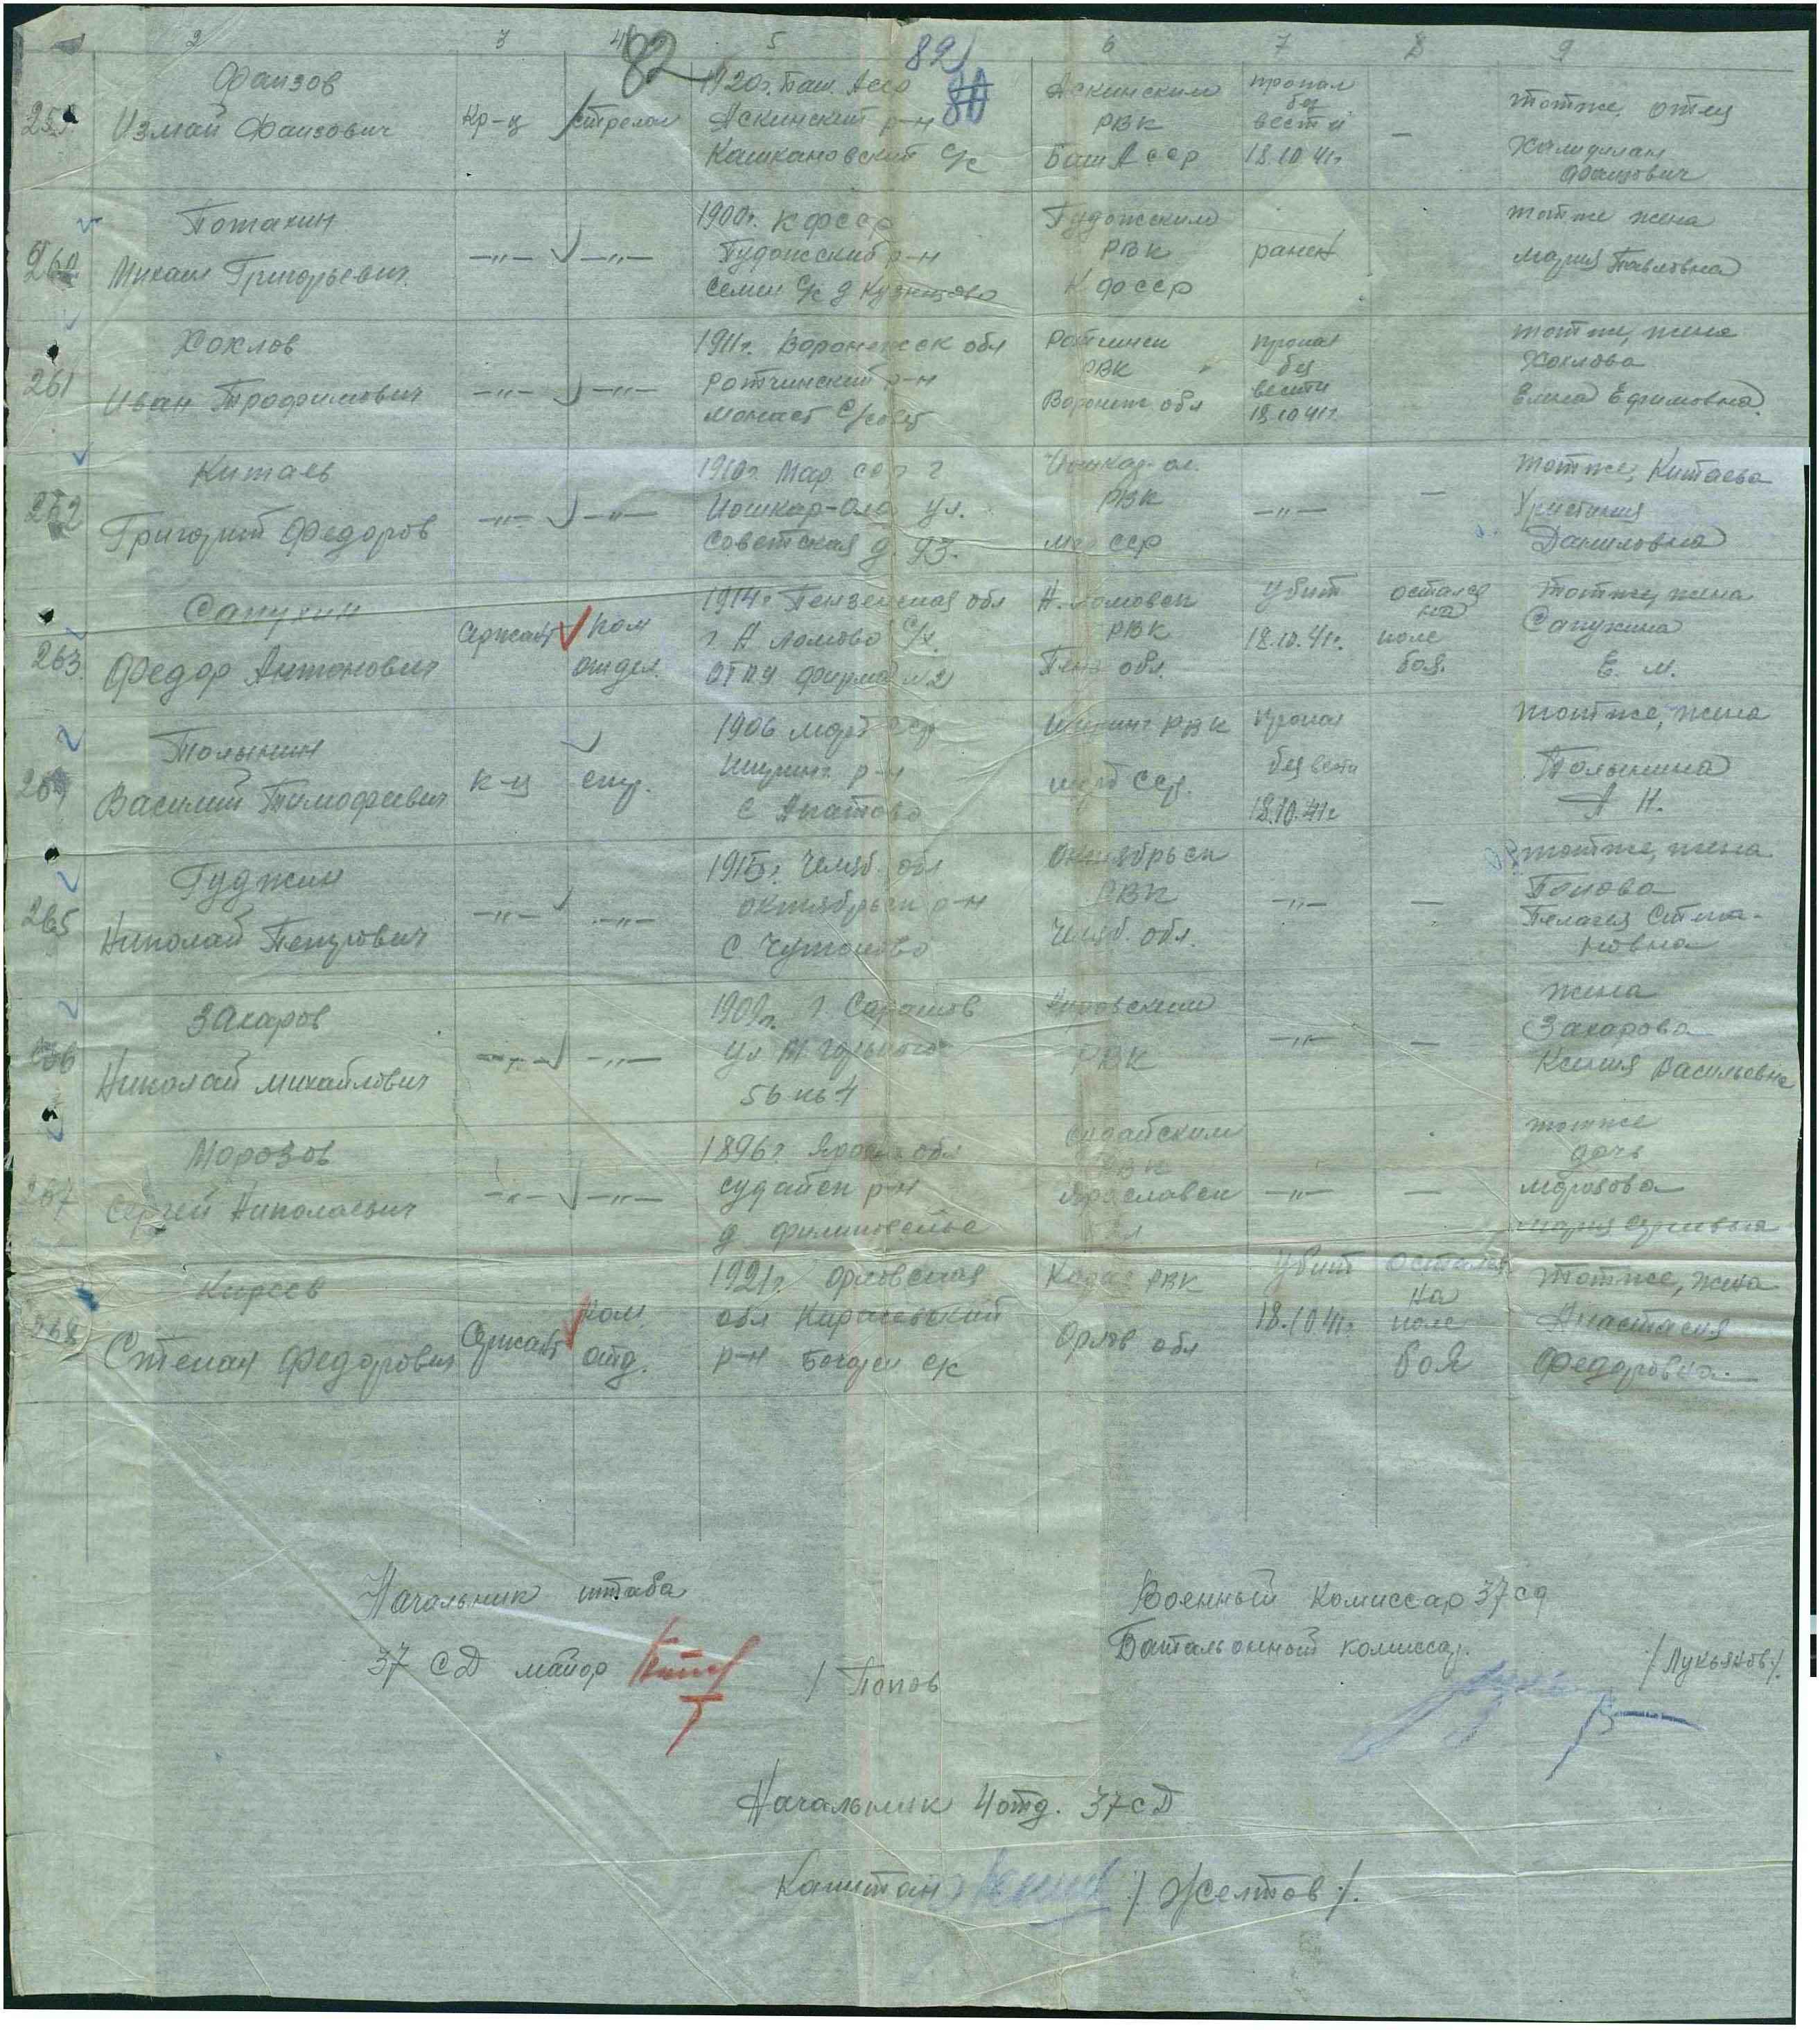 2 3 4 5 6 7 8 9
82 82 80
259 Фаизов
Измай Фаизович
Кр-ц стрелок
1920г. Баш. Ассо
Аскинский р-н
Кашкановский С/с
Аскинским
РВК
Баш Асср
пропал
без
вести
18.10.41г.
—
тотже, отец
Фаизович
260 Потахин
Михаил Григорьевич
—"— —"—
1900г. КФССР
Пудожский р-н
Семен С/с д Кузнецово
Пудожским
РВК
К фсср
ранен
тотже жена
Мария Павловна
261 Хохлов
Иван Трофимович
—"— —"—
1911г. Воронежск обл
р-н
Монаст С/совет
РВК
Воронеж. обл
пропал
без
вести
18.10.41г.
тотже, жена
Хохлова
Елена Ефимовна
262 Китаев
Григорий Федоров
—"— —"—
1910г. Мар. сср г
Йошкар-Ола ул.
Советская д. 93.
Йошкар-ол.
РВК
Мар ССР
—"—
—
тотже, Китаева
Христиния
Даниловна
263 Сапухин
Федор Антонович
Сержант Ком
отдел.
1914г Пензенская обл
г. Н Ломово С/с.
Н. Ломовск
РВК
Пенз обл.
убит
18.10.41г.
остался
на
поле
боя.
тотже, жена
Сапухина
Е. М.
264 Толынин
Василий Тимофеевич
К-ц стр.
1906 Морд сср
Ичинк р-н
с Акатово
РВК
Морд сср.
пропал
без вести
18.10.41г
тотже, жена
Толынина
А Н.
265 Гуджин
Николай Петрович
—"— —"—
1915г. Челяб. обл
октябрьск р-н
С.
Октябрьск
РВК
Челяб. обл.
—"—
—
тотже, жена
Попова
Пелагея Степа-
новна
266 Захаров
Николай Михайлович
—"— —"—
1909г. г. Саратов
ул М Горького
56 кв 4
Кировским
РВК
—"—
—
жена
Захарова
Ксения Васильевна
267 Морозов
Сергей Николаевич
—"— —"—
1896г. Яросл. обл
Судайск р-н
д.
Судайским
РВК
Ярославск
обл
—"—
—
тотже
дочь
Морозова
Мария Сергеевна
268 Киреев
Степан Федорович
Сержант Ком.
отд.
1921г. Орловская
обл Карачевский
р-н с/с
РВК
Орлов обл
убит
18.10.41г.
остался
на
поле
боя
тотже, жена
Анастасия
Федоровна
Начальник штаба
37 СД майор / Попов
Военный Комиссар 37 сд
Батальонный комиссар.
/ Лукьянов /.
Начальник 4 отд. 37 СД
Капитан ./ Желтов /.